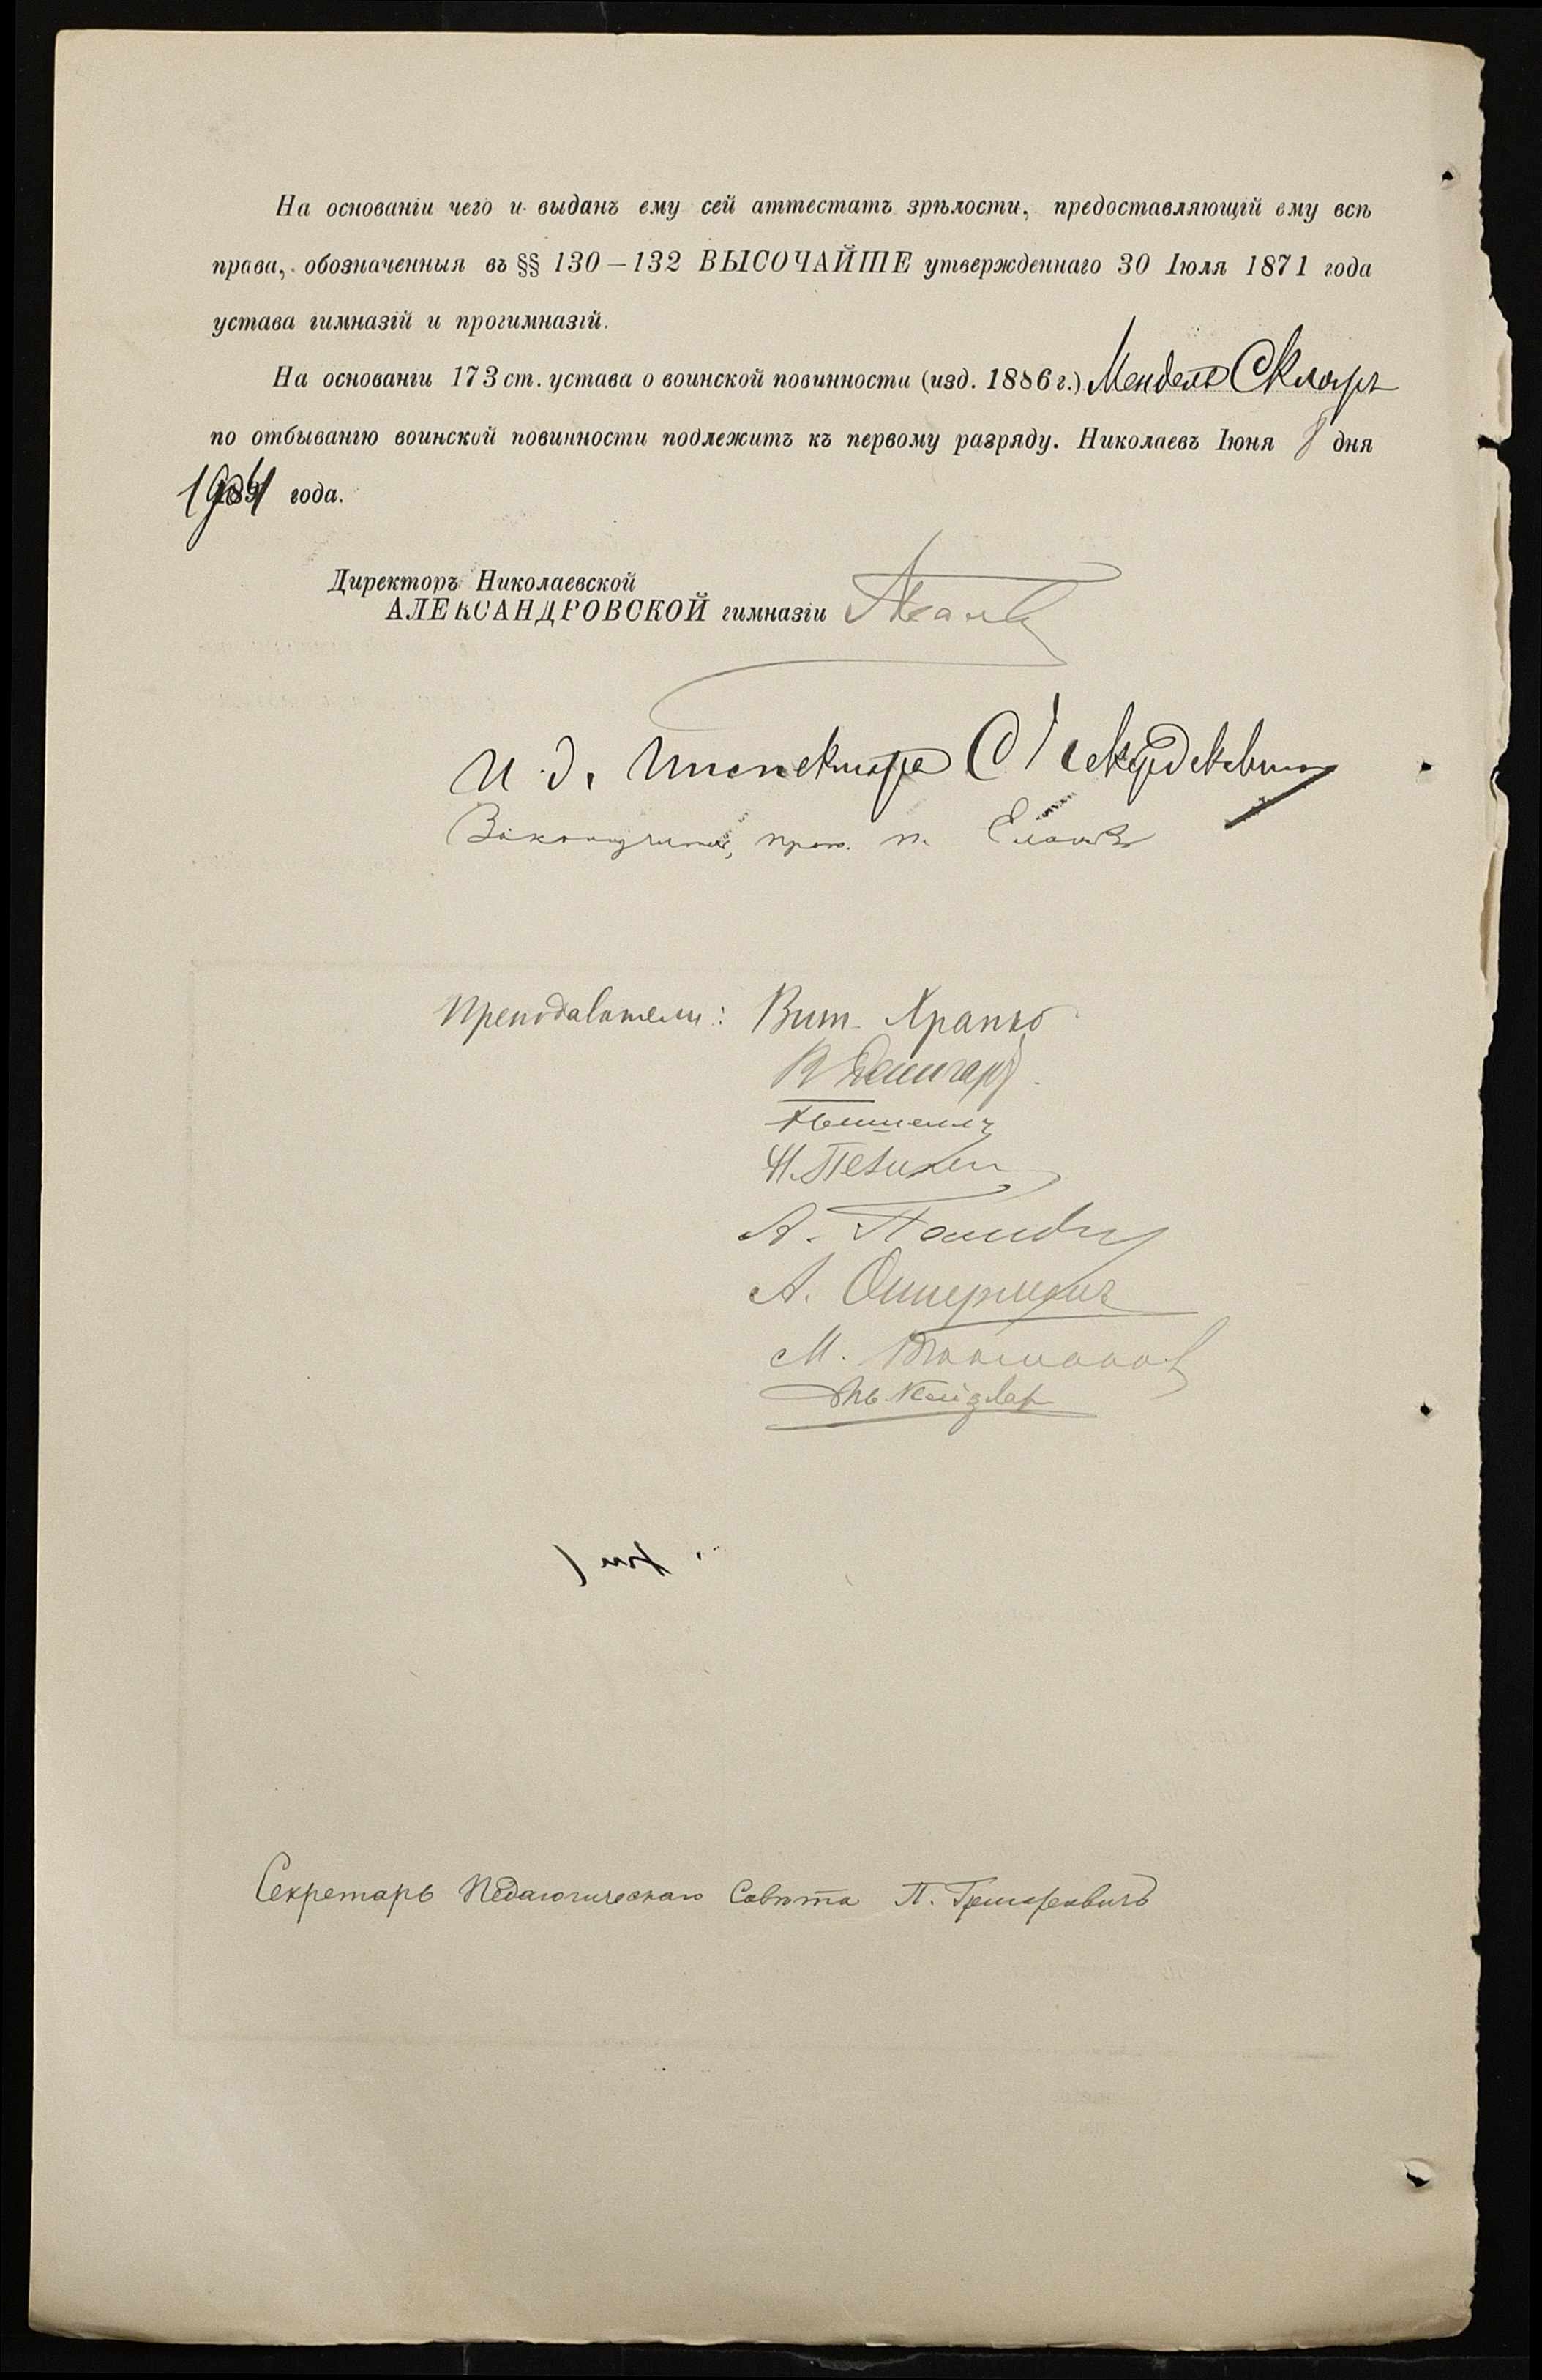 На основаніи чего и выданъ ему сей аттестатъ зрѣлости, предоставляющій ему всѣ
права, обозначенныя въ §§ 130—132 ВЫСОЧАЙШЕ утвержденнаго 30 Іюля 1871 года
устава гимназій и прогимназій.
На основаніи 173 ст. устава о воинской повинности (изд. 1886 г.) Мендель Скляръ
по отбыванію воинской повинности подлежитъ къ первому разряду. Николаевъ Іюня 8 дня
1904 года.
Директоръ Николаевской
АЛЕКСАНДРОВСКОЙ гимназіи
И. д. Инспектора С.
Законоучитель, прот. п.
Преподаватели: Вит. Храпко
В
Н.
А.
А.
М.
Секретарь Педагогическаго Совѣта П. Григоревичъ